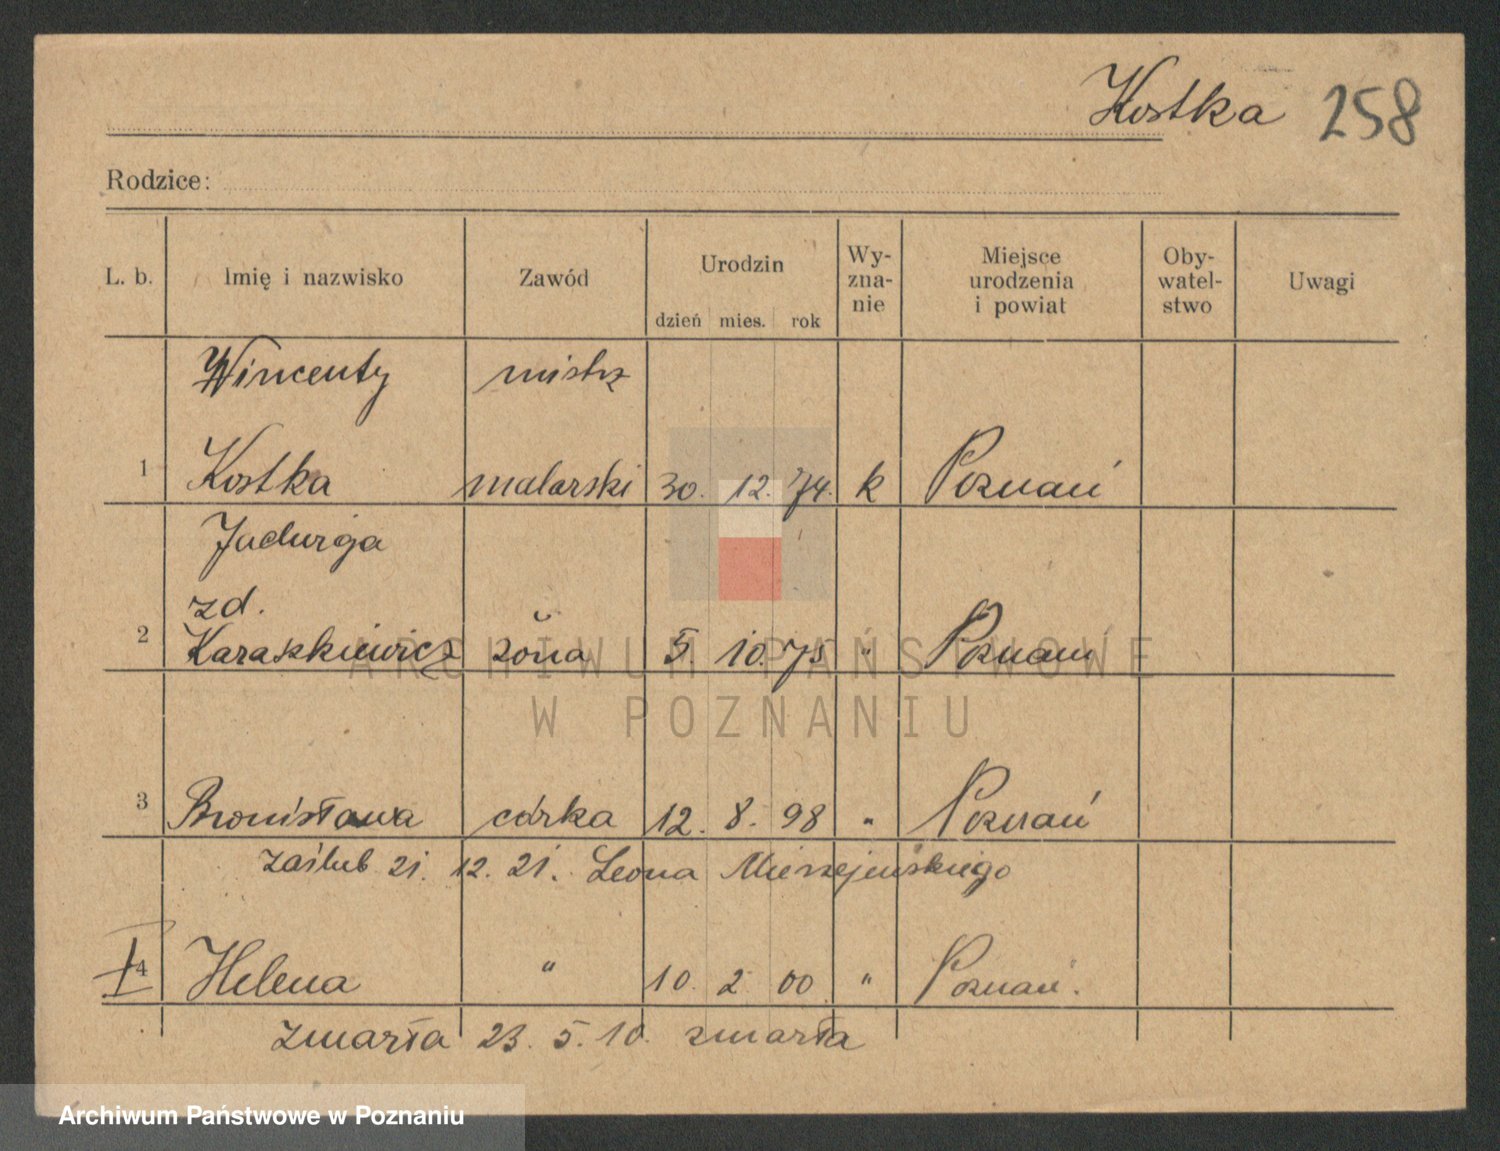 Kostka 258
Rodzice:
L. b. Imię i nazwisko Zawód Urodzin dzień mies. rok Wy-zna-nie Miejsce urodzenia i powiat Oby-watel-stwo Uwagi
Wincenty mistrz
1 Kostka malarski 30. 12. 74. k Poznań
Jadwiga
zd.
2 Karaskiewicz żona 5. 10. 75 " Poznań
ARCHIWUM PAŃSTWOWE
W POZNANIU
3 Bronisława córka 12. 8. 98 " Poznań
zaślub 21. 12. 21. Leona
4 Helena " 10. 2 00 " Poznań.
zmarła 23. 5. 10. zmarła
Archiwum Państwowe w Poznaniu